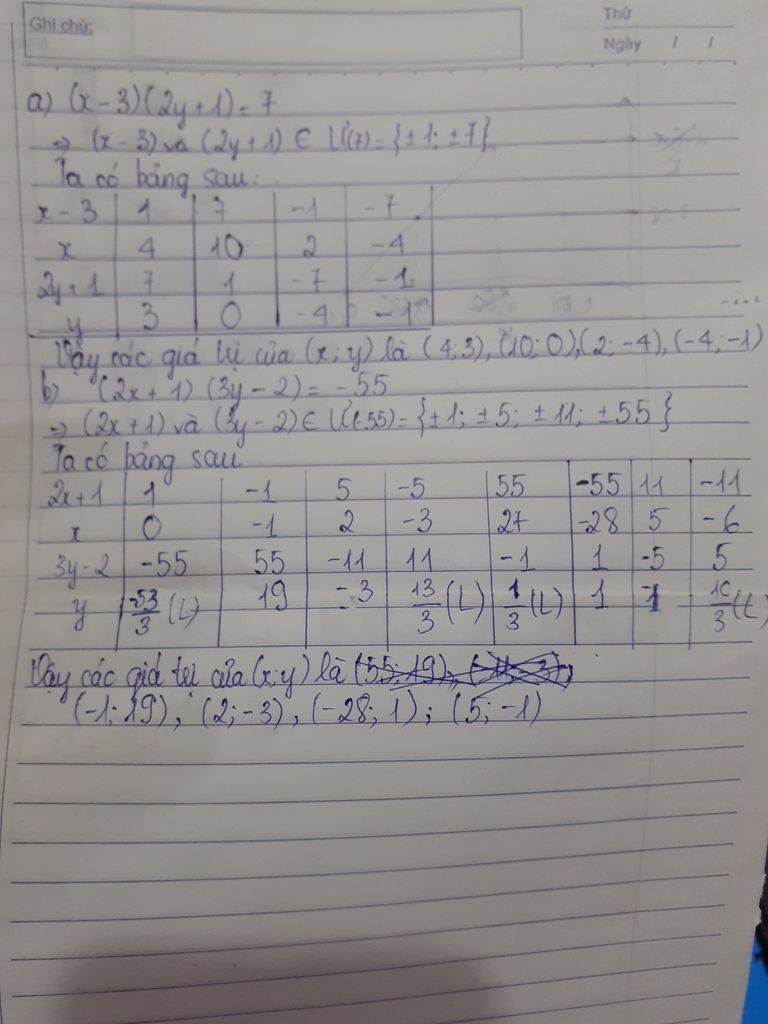 Ghi chú:
Thứ
Ngày / /
a) (x-3)(2y+1) = 7
=> (x-3) và (2y+1) ∈ Ư(7) = {±1; ±7}
Ta có bảng sau:
x-3 | 1 | 7 | -1 | -7
x | 4 | 10 | 2 | -4
2y+1 | 7 | 1 | -7 | -1
y | 3 | 0 | -4 | -1
Vậy các giá trị của (x; y) là (4;3), (10; 0), (2; -4), (-4; -1)
b) (2x+1) (3y-2) = -55
=> (2x+1) và (3y-2) ∈ Ư(-55) = {±1; ±5; ±11; ±55}
Ta có bảng sau
2x+1 | 1 | -1 | 5 | -5 | 55 | -55 | 11 | -11
x | 0 | -1 | 2 | -3 | 27 | -28 | 5 | -6
3y-2 | -55 | 55 | -11 | 11 | -1 | 1 | -5 | 5
y | -53/3 (L) | 19 | -3 | 13/3 (L) | 1/3 (L) | 1 | -1 | 10/3 (L)
Vậy các giá trị của (x; y) là
(-1; 19), (2; -3), (-28; 1); (5; -1)